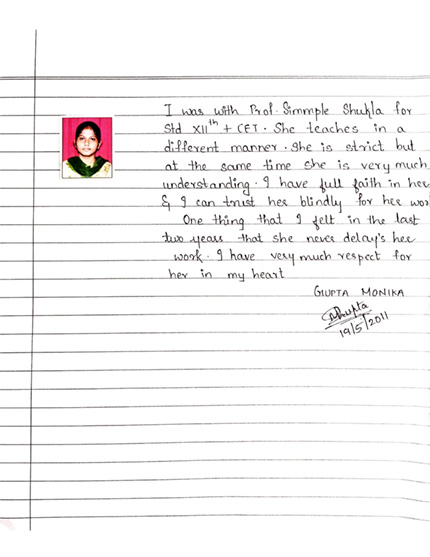 I was with Prof. Simmple Shukla for
Std XIIth + CET. She teaches in a
different manner. She is strict but
at the same time she is very much
understanding. I have full faith in her
& I can trust her blindly for her wor
One thing that I felt in the last
two years that she never delay's her
work. I have very much respect for
her in my heart
GUPTA MONIKA
MGupta
19/5/2011